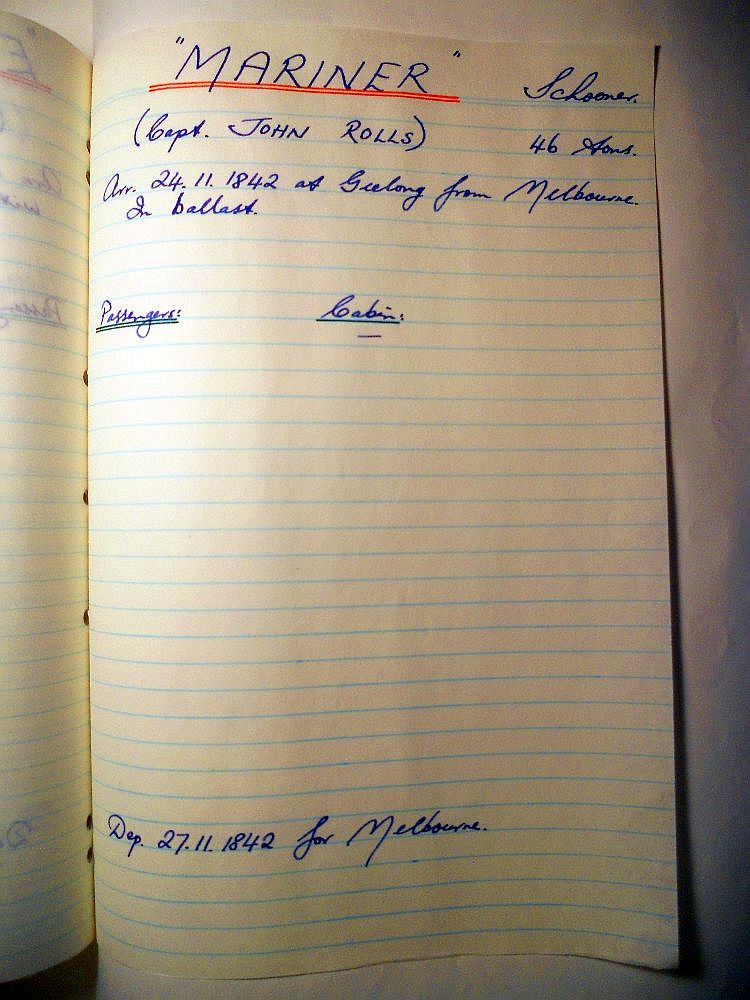 "MARINER" Schooner.
(Capt. JOHN ROLLS) 46 tons.
Arr. 24.11.1842 at Geelong from Melbourne.
In ballast.
Passengers: Cabin:
—
Dep. 27.11.1842 for Melbourne.